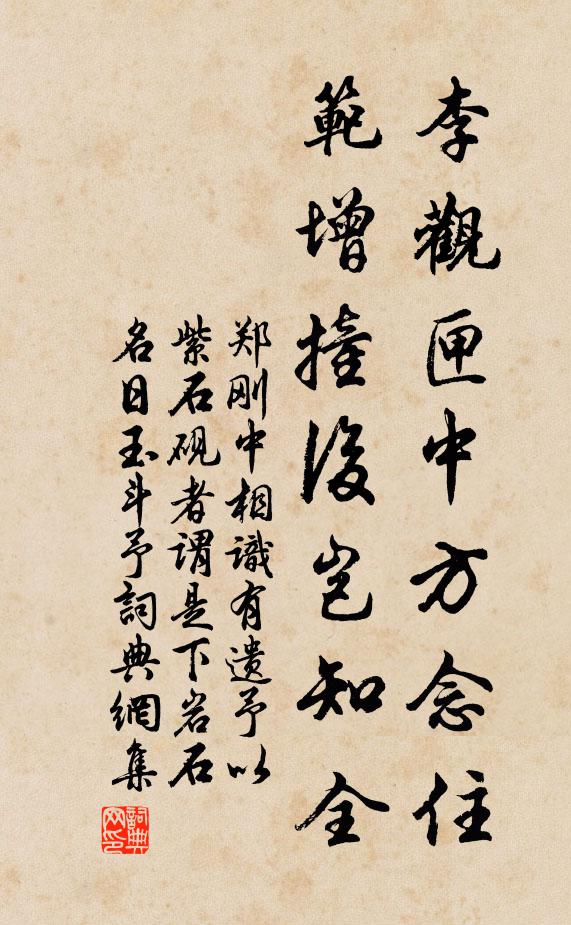 李觀匣中方念住
範增撞後豈知全
郑刚中相識有遺予以
紫石砚者謂是下岩石
名日玉斗予詞典網集
詞典网印